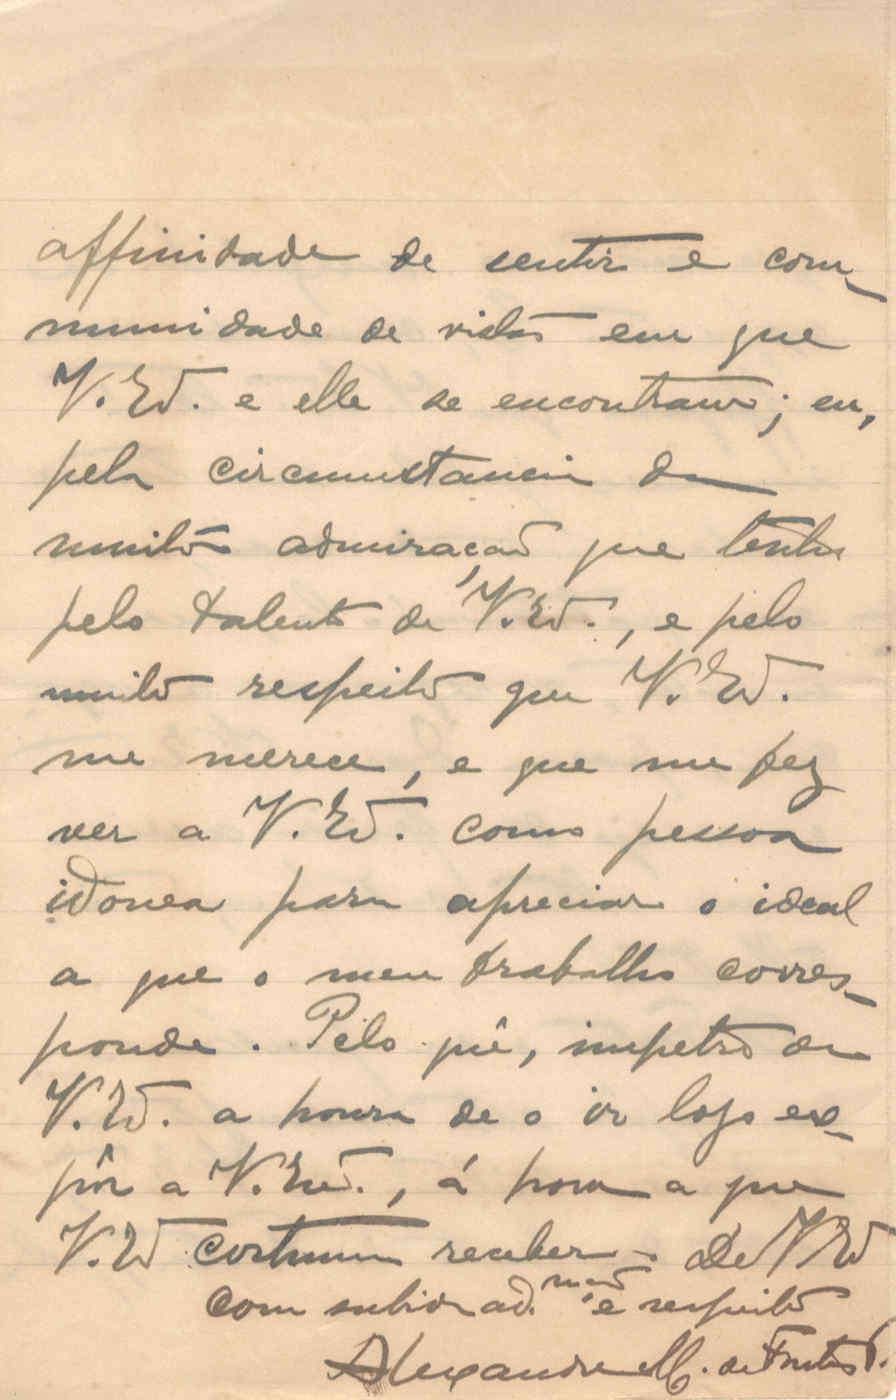 affinidade de sentir e com-
munidade de vistas em que
V. Ex.ª e elle se encontram; eu,
pela circumstancia da
muita admiração que tenho
pelo talento de V. Ex.ª, e pelo
muito respeito que V. Ex.ª
me merece, e que me fez
ver a V. Ex.ª como pessoa
idonea para apreciar o ideal
a que o meu trabalho corres-
ponde. Pelo que, impetro de
V. Ex.ª a honra de o ir logo ex-
pôr a V. Ex.ª, á hora a que
V. Ex.ª costuma receber. De V Ex.ª
com subida ad.mção e respeito
Alexandre M. de Fontes